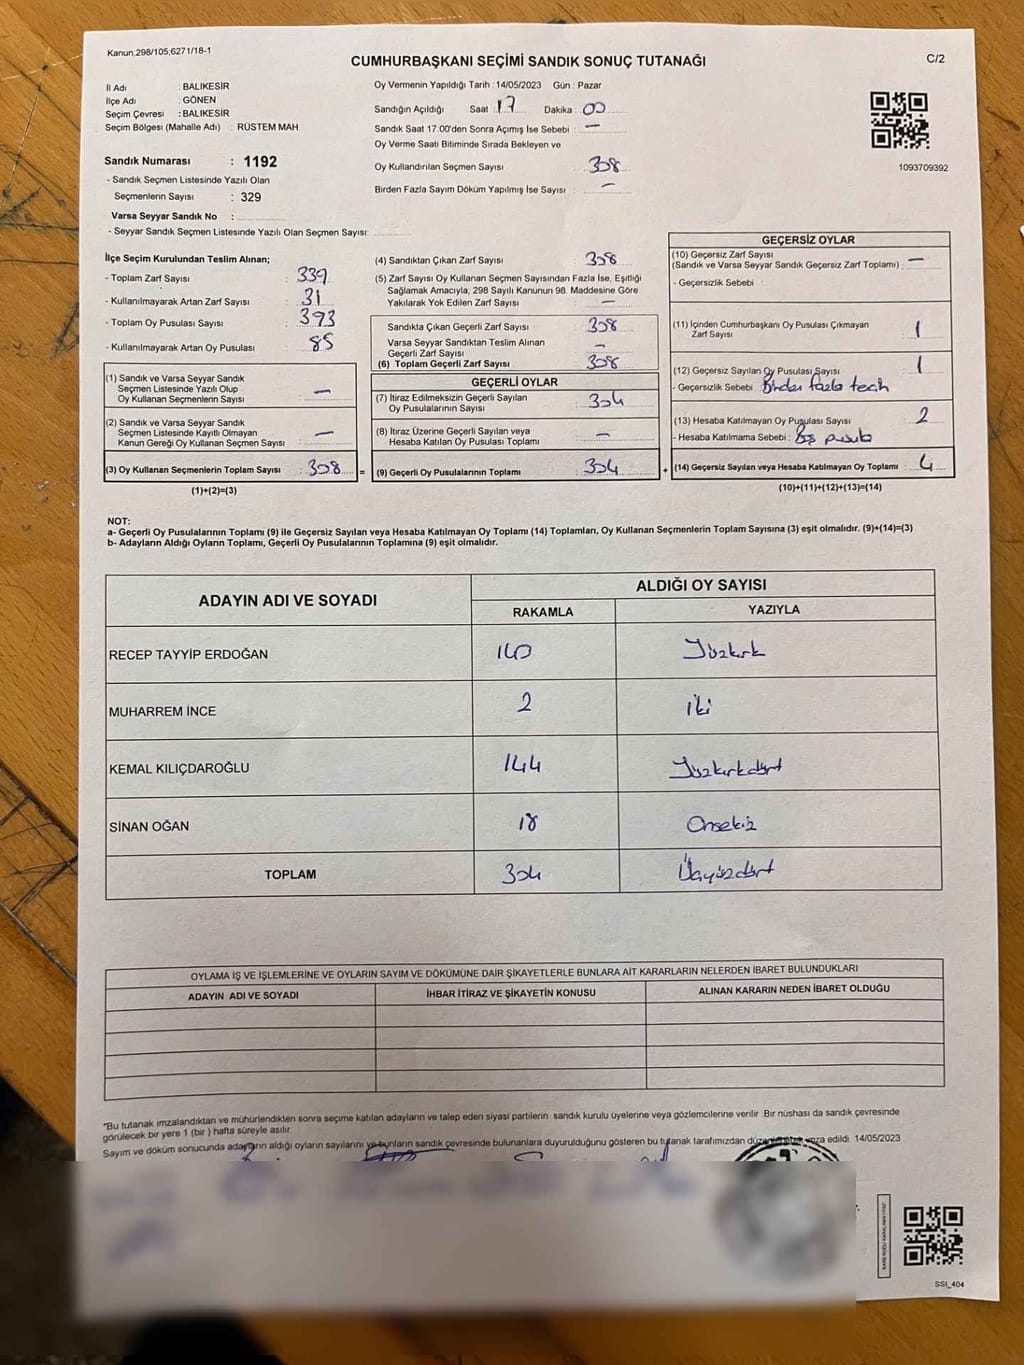 Kanun,298/105,6271/18-1
CUMHURBAŞKANI SEÇİMİ SANDIK SONUÇ TUTANAĞI
C/2
İl Adı : BALIKESİR
İlçe Adı : GÖNEN
Seçim Çevresi : BALIKESİR
Seçim Bölgesi (Mahalle Adı) : RÜSTEM MAH
Sandık Numarası : 1192
- Sandık Seçmen Listesinde Yazılı Olan
Seçmenlerin Sayısı : 329
Varsa Seyyar Sandık No :
- Seyyar Sandık Seçmen Listesinde Yazılı Olan Seçmen Sayısı:
Oy Vermenin Yapıldığı Tarih : 14/05/2023 Gün : Pazar
Sandığın Açıldığı Saat : 17 Dakika : 00
Sandık Saat 17.00'den Sonra Açımış İse Sebebi : —
Oy Verme Saati Bitiminde Sırada Bekleyen ve
Oy Kullandırılan Seçmen Sayısı : 308
Birden Fazla Sayım Döküm Yapılmış İse Sayısı : —
1093709392
İlçe Seçim Kurulundan Teslim Alınan;
- Toplam Zarf Sayısı : 339
- Kullanılmayarak Artan Zarf Sayısı : 31
- Toplam Oy Pusulası Sayısı : 393
- Kullanılmayarak Artan Oy Pusulası : 85
(1) Sandık ve Varsa Seyyar Sandık
Seçmen Listesinde Yazılı Olup
Oy Kullanan Seçmenlerin Sayısı : —
(2) Sandık ve Varsa Seyyar Sandık
Seçmen Listesinde Kayıtlı Olmayan
Kanun Gereği Oy Kullanan Seçmen Sayısı : —
(3) Oy Kullanan Seçmenlerin Toplam Sayısı : 308
(1)+(2)=(3)
=
(4) Sandıktan Çıkan Zarf Sayısı : 308
(5) Zarf Sayısı Oy Kullanan Seçmen Sayısından Fazla İse, Eşitliği
Sağlamak Amacıyla, 298 Sayılı Kanunun 98. Maddesine Göre
Yakılarak Yok Edilen Zarf Sayısı : —
Sandıkta Çıkan Geçerli Zarf Sayısı : 308
Varsa Seyyar Sandıktan Teslim Alınan
Geçerli Zarf Sayısı : —
(6) Toplam Geçerli Zarf Sayısı : 308
GEÇERLİ OYLAR
(7) İtiraz Edilmeksizin Geçerli Sayılan
Oy Pusulalarının Sayısı : 304
(8) İtiraz Üzerine Geçerli Sayılan veya
Hesaba Katılan Oy Pusulası Toplamı : —
(9) Geçerli Oy Pusulalarının Toplamı : 304
+
GEÇERSİZ OYLAR
(10) Geçersiz Zarf Sayısı
(Sandık ve Varsa Seyyar Sandık Geçersiz Zarf Toplamı) : —
- Geçersizlik Sebebi :
(11) İçinden Cumhurbaşkanı Oy Pusulası Çıkmayan
Zarf Sayısı : 1
(12) Geçersiz Sayılan Oy Pusulası Sayısı : 1
- Geçersizlik Sebebi : Birden fazla tercih
(13) Hesaba Katılmayan Oy Pusulası Sayısı : 2
- Hesaba Katılmama Sebebi : Boş pusula
(14) Geçersiz Sayılan veya Hesaba Katılmayan Oy Toplamı : 4
(10)+(11)+(12)+(13)=(14)
NOT:
a- Geçerli Oy Pusulalarının Toplamı (9) ile Geçersiz Sayılan veya Hesaba Katılmayan Oy Toplamı (14) Toplamları, Oy Kullanan Seçmenlerin Toplam Sayısına (3) eşit olmalıdır. (9)+(14)=(3)
b- Adayların Aldığı Oyların Toplamı, Geçerli Oy Pusulalarının Toplamına (9) eşit olmalıdır.
ADAYIN ADI VE SOYADI ALDIĞI OY SAYISI
RAKAMLA YAZIYLA
RECEP TAYYİP ERDOĞAN 140 Yüzkırk
MUHARREM İNCE 2 iki
KEMAL KILIÇDAROĞLU 144 Yüzkırkdört
SİNAN OĞAN 18 Onsekiz
TOPLAM 304 Üçyüzdört
OYLAMA İŞ VE İŞLEMLERİNE VE OYLARIN SAYIM VE DÖKÜMÜNE DAİR ŞİKAYETLERLE BUNLARA AİT KARARLARIN NELERDEN İBARET BULUNDUKLARI
ADAYIN ADI VE SOYADI İHBAR İTİRAZ VE ŞİKAYETİN KONUSU ALINAN KARARIN NEDEN İBARET OLDUĞU
"Bu tutanak imzalandıktan ve mühürlendikten sonra seçime katılan adayların ve talep eden siyasi partilerin sandık kurulu üyelerine veya gözlemcilerine verilir .Bir nüshası da sandık çevresinde
görülecek bir yere 1 (bir ) hafta süreyle asılır.
Sayım ve döküm sonucunda adayların aldığı oyların sayılarını ve bunların sandık çevresinde bulunanlara duyurulduğunu gösteren bu tutanak tarafımızdan imza edildi. 14/05/2023
SSI_404